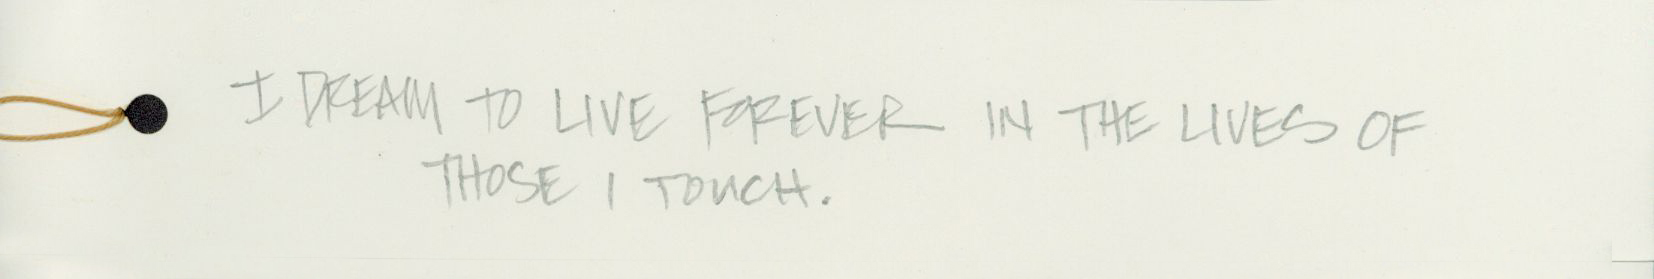 I DREAM TO LIVE FOREVER IN THE LIVES OF
THOSE I TOUCH.